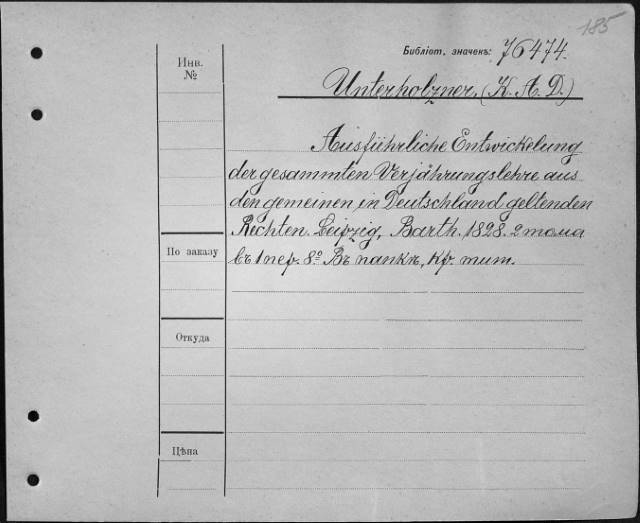 185
Библіот. значекъ: 76474.
Инв.
№
Unterholzner, (K. A. D.)
Ausführliche Entwickelung
der gesammten Verjährungslehre aus
den gemeinen in Deutschland geltenden
Rechten. Leipzig, Barth. 1828. 2 тома
въ 1 пер. 8º Въ папкѣ, кр. тит.
По заказу
Откуда
Цѣна